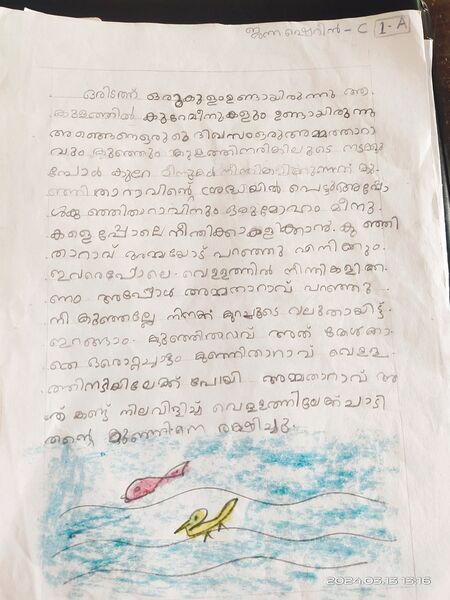 ജന്ന ഷെറിൻ - C 1-A
ഒരിടത്ത് ഒരുകുളംഉണ്ടായിരുന്നു ആ.
ക്കുളത്തിൽ കുറേമീനുകളും ഉണ്ടായിരുന്നു
അങ്ങനെഒരു ദിവസംഒരുഅമ്മത്താറാ
വും കുഞ്ഞും കുളത്തിനരികിലൂടെ നടക്കു
മ്പോൾ കുറേ മീനുകൾ നീന്തികളിക്കുന്നത് കു
ഞ്ഞിതാറാവിന്റെ ശ്രദ്ധയിൽ പെട്ടുഅപ്പോ
ൾകുഞ്ഞിതാറാവിനും ഒരുമോഹം മീനു.
കളെപ്പോലെനീന്തിക്കാകളിക്കാൻ. കുഞ്ഞി
താറാവ് അമ്മയോട് പറഞ്ഞു എനിക്കും.
ഇവരെപോലെ. വെള്ളത്തിൽ നീന്തികളിക്ക.
ണം അപ്പോൾ അമ്മതാറാവ് പറഞ്ഞു.
നീ കുഞ്ഞല്ലേ നിനക്ക് കുറച്ചുടെ വലുതായിട്ട്.
ഇറങ്ങാം. കുഞ്ഞിത്താറാവ് അത് കേൾക്കാ.
തെ ഒരൊറ്റച്ചാട്ടം കുഞ്ഞിതാറാവ് വെള്ള.
ത്തിനടിയിലേക്ക് പോയി. അമ്മതാറാവ് അ
ത് കണ്ട് നിലവിളിച്ച് വെള്ളത്തിലേക്ക്ചാടി
തന്റെ കുഞ്ഞിനെ രക്ഷിച്ചു.
2024.03.13 13:16